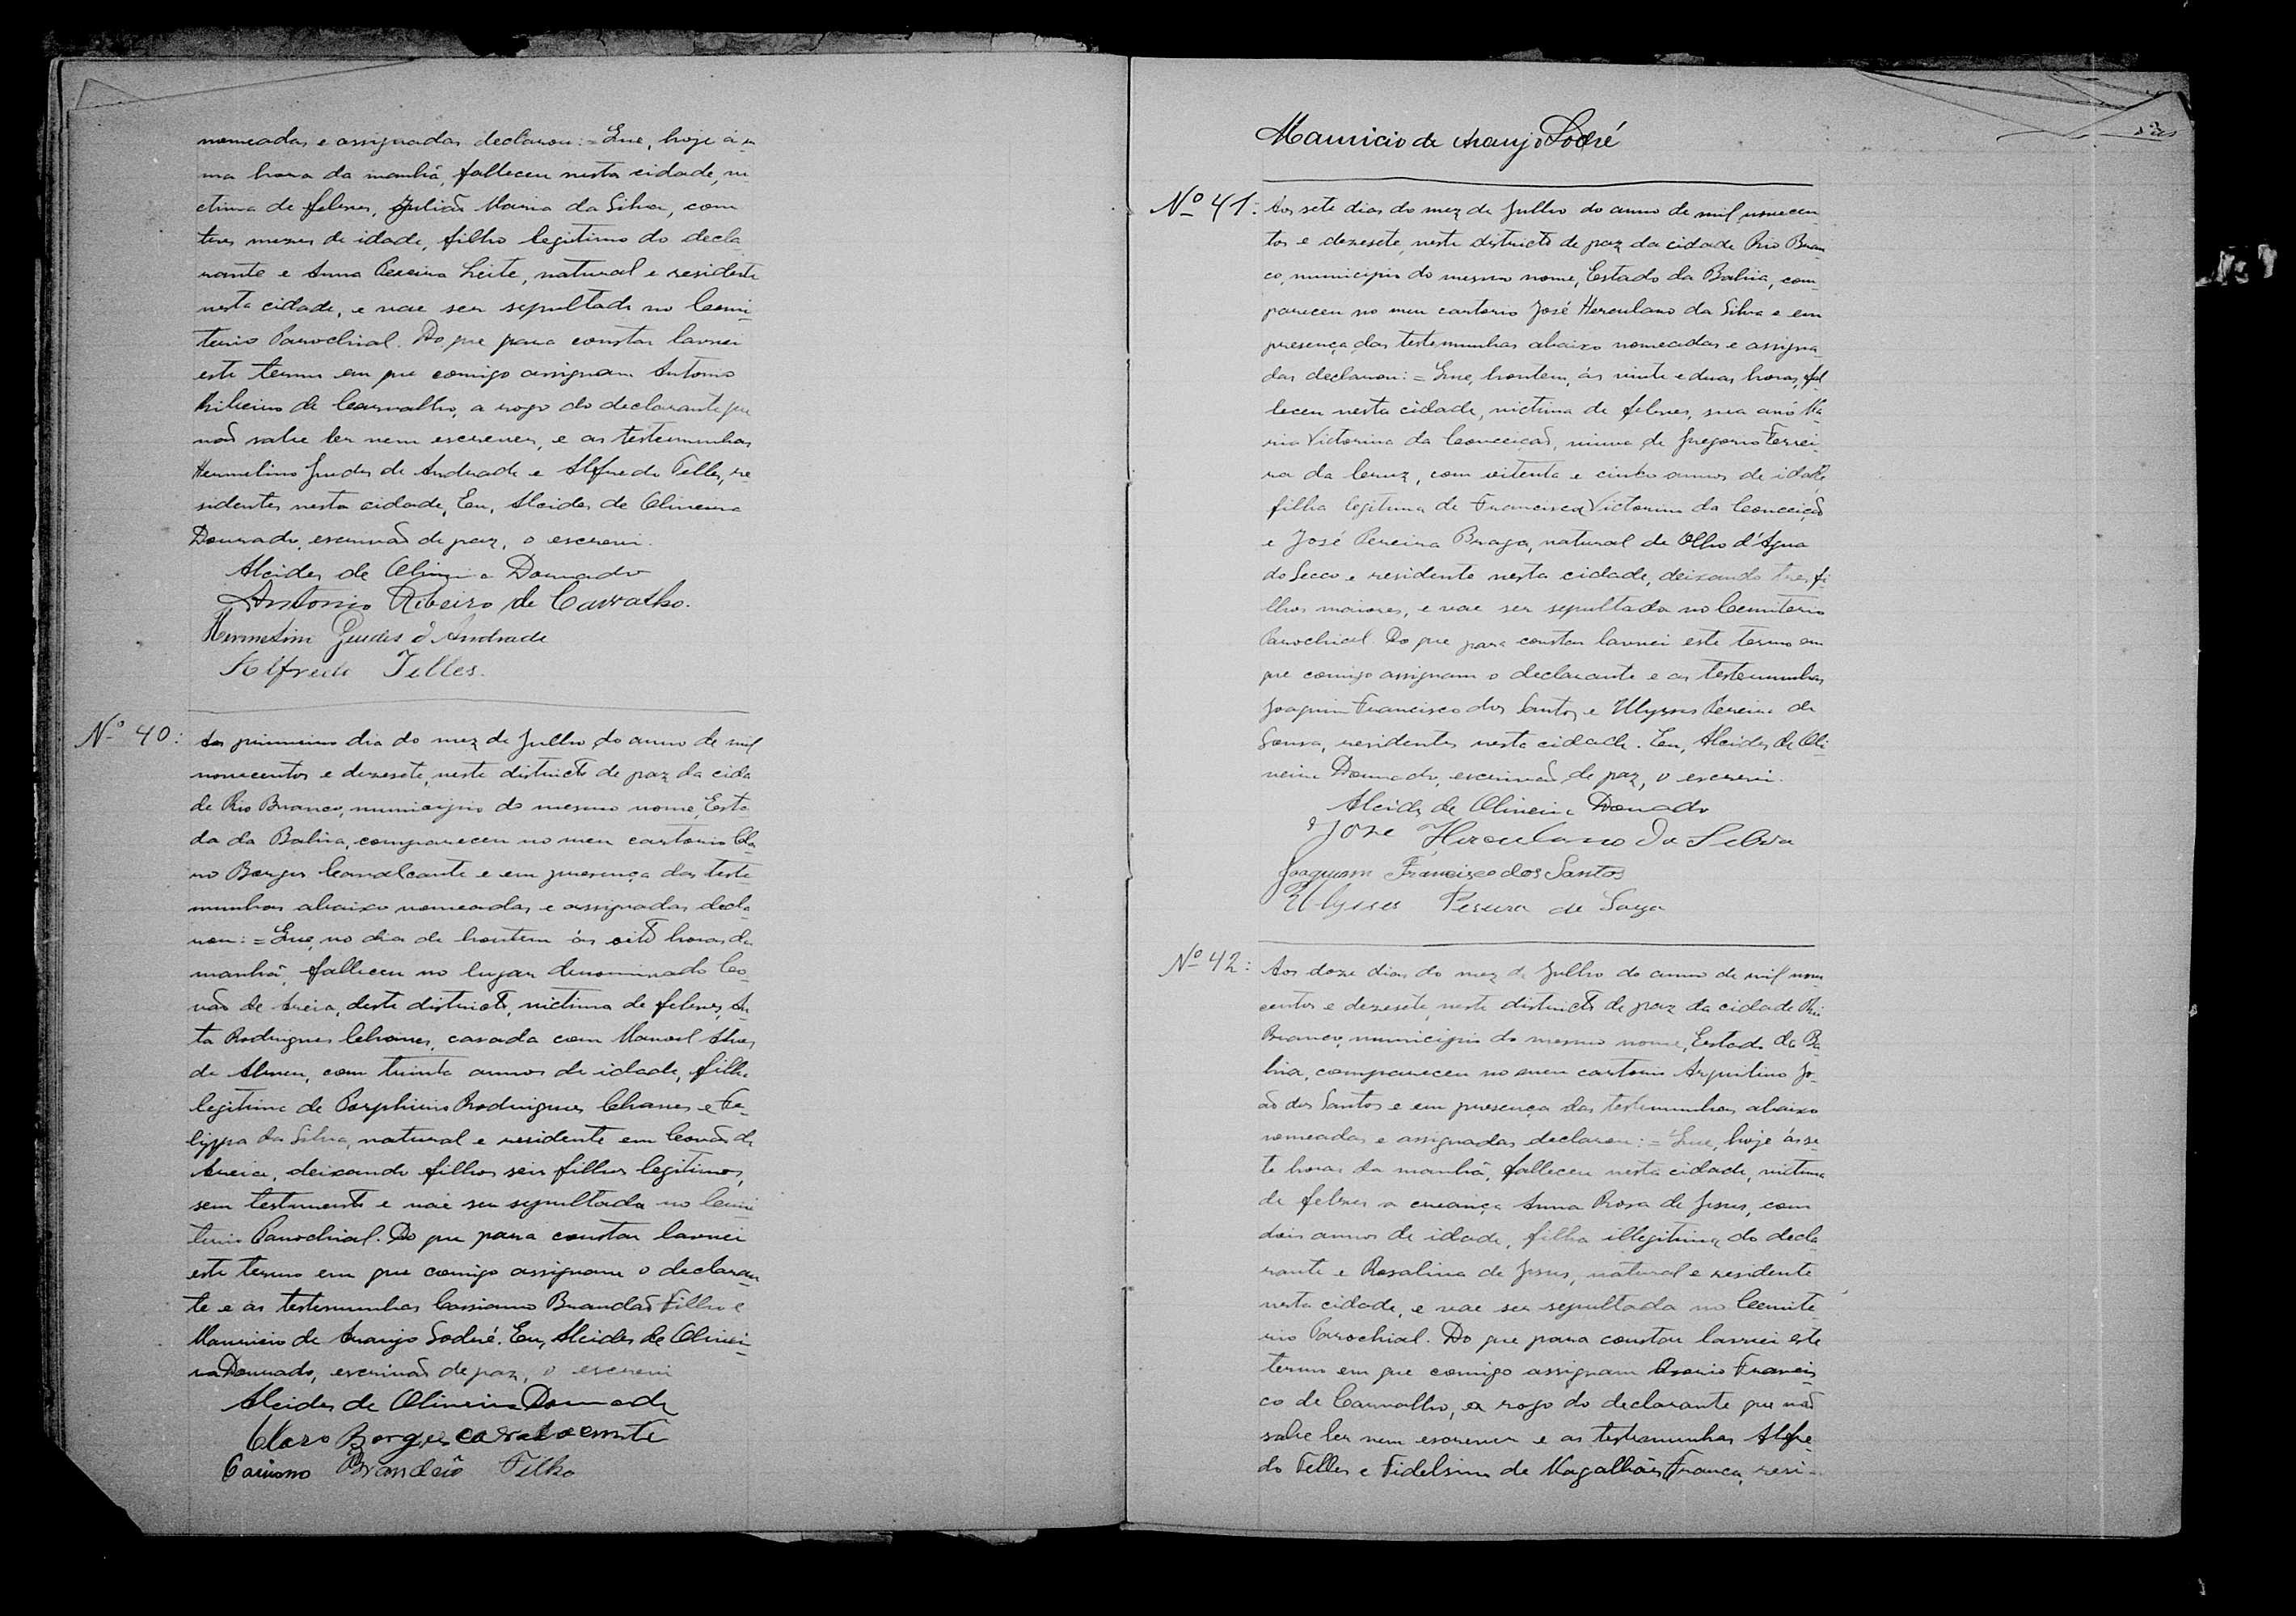 nomeadas e assignadas declarou: = Que, hoje á u
ma hora da manhã, falleceu nesta cidade, vi
ctima de febres, Julião Maria da Silva, com
tres mezes de idade, filho legitimo do decla
rante e Anna Pereira Leite, natural e residente
nesta cidade, e vae ser sepultado no Cemi-
terio Parochial. Do que para constar lavrei
este termo em que comigo assignam Antonio
Ribeiro de Carvalho, a rogo do declarante que
não sabe ler nem escrever, e as testemunhas
Hermelino Guedes de Andrade e Alfredo Telles, re
sidentes nesta cidade, Eu, Alcides de Oliveira
Dourado, escrivão de paz, o escrevi.
Alcides de Oliveira Dourado
Antonio Ribeiro de Carvalho.
Hermelino Guedes d'Andrade
Alfredo Telles.
Nº 40: Ao primeiro dia do mez de Julho do anno de mil
novecentos e dezesete, neste districto de paz da cida
de Rio Branco, municipio do mesmo nome, Esta-
do da Bahia, compareceu no meu cartorio Cla
ro Borges Cavalcante e em presença das teste-
munhas abaixo nomeadas e assignadas decla
rou: = Que, no dia de hontem ás oito horas da
manhã, falleceu no lugar denominado Co-
vão de Areia, deste districto, victima de febres,
ta Rodrigues Chaves, casada com Manoel Alves
de Abreu, com trinta annos de idade, filha
legitima de Porphirio Rodrigues Chaves e Fe-
lippa da Silva, natural e residente em Covão de
Areia, deixando filhos seis filhos legitimos,
sem testamento e vae ser sepultada no Cemi
terio Parochial. Do que para constar lavrei
este termo em que comigo assignam o declaran
te e as testemunhas Cassiano Brandão Filho e
Mauricio de Araujo Sodré. Eu, Alcides de Olivei-
ra Dourado, escrivão de paz, o escrevi
Alcides de Oliveira Dourado
Claro Borges cavalcante
Cassiano Brandão Filho
Mauricio de Araujo Sodré
Nº 41: Aos sete dias do mez de Julho do anno de mil novecen
tos e dezesete, neste districto de paz da cidade Rio Bran
co, municipio do mesmo nome, Estado da Bahia, com-
pareceu no meu cartorio José Herculano da Silva e em
presença das testemunhas abaixo nomeadas e assigna-
das declarou: = Que, hontem, ás vinte e duas horas, fal
leceu nesta cidade, victima de febres, sua avó Ma
ria Victorina da Conceição, viuva de Gregorio Ferrei-
ra da Cruz, com oitenta e cinco annos de idade
filha legitima de Francisca Victorina da Conceição
e José Pereira Braga, natural de Olho d'Agua
do Secco e residente nesta cidade, deixando tres fi
lhos maiores, e vae ser sepultada no Cemiterio
Parochial. Do que para constar lavrei este termo em
que comigo assignam o declarante e as testemunhas
Joaquim Francisco dos Santos e Ulysses Pereira de
Sousa, residentes nesta cidade. Eu, Alcides de Oli
veira Dourado, escrivão de paz, o escrevi.
Alcides de Oliveira Dourado
José Herculano da Silva
Joaquim Francisco dos Santos
Ulysses Pereira de Souza
Nº 42: Aos doze dias do mez de Julho do anno de mil nove
centos e dezesete, neste districto de paz da cidade Rio
Branco, municipio do mesmo nome, Estado da Ba-
hia, compareceu no meu cartorio Argentino Jo-
ão dos Santos e em presença das testemunhas abaixo
nomeadas e assignadas declarou: = Que, hoje ás se
te horas da manhã, falleceu nesta cidade, victima
de febres a creança Anna Rosa de Jesus, com
dois annos de idade, filha illegitima do decla
rante e Rosalina de Jesus, natural e residente
nesta cidade, e vae ser sepultada no Cemite
rio Parochial. Do que para constar lavrei este
termo em que comigo assignam Francis
co de Carvalho, a rogo do declarante que não
sabe ler nem escrever e as testemunhas Alfre-
do Telles e Fidelsino de Magalhães Franca, resi-